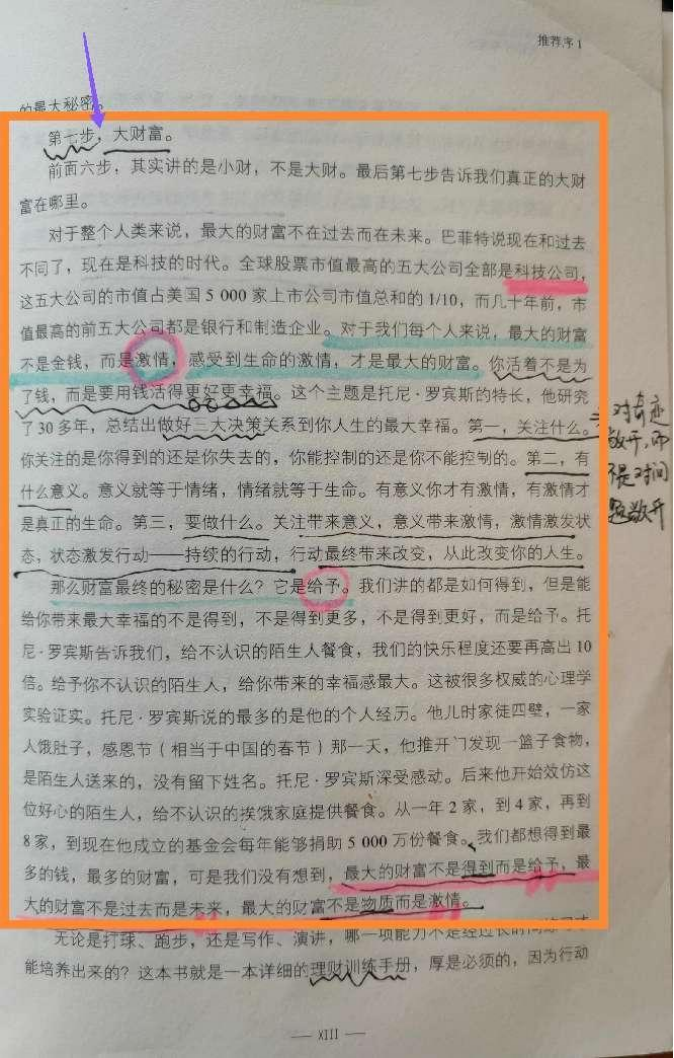 推荐序 1
的最大秘密。
第七步，大财富。
前面六步，其实讲的是小财，不是大财。最后第七步告诉我们真正的大财
富在哪里。
对于整个人类来说，最大的财富不在过去而在未来。巴菲特说现在和过去
不同了，现在是科技的时代。全球股票市值最高的五大公司全部是科技公司，
这五大公司的市值占美国 5 000 家上市公司市值总和的 1/10，而几十年前，市
值最高的前五大公司都是银行和制造企业。对于我们每个人来说，最大的财富
不是金钱，而是激情，感受到生命的激情，才是最大的财富。你活着不是为
了钱，而是要用钱活得更好更幸福。这个主题是托尼·罗宾斯的特长，他研究
了 30 多年，总结出做好三大决策关系到你人生的最大幸福。第一，关注什么。
你关注的是你得到的还是你失去的，你能控制的还是你不能控制的。第二，有
什么意义。意义就等于情绪，情绪就等于生命。有意义你才有激情，有激情才
是真正的生命。第三，要做什么。关注带来意义，意义带来激情，激情激发状
态，状态激发行动——持续的行动，行动最终带来改变，从此改变你的人生。
那么财富最终的秘密是什么？它是给予。我们讲的都是如何得到，但是能
给你带来最大幸福的不是得到，不是得到更多，不是得到更好，而是给予。托
尼·罗宾斯告诉我们，给不认识的陌生人餐食，我们的快乐程度还要再高出 10
倍。给予你不认识的陌生人，给你带来的幸福感最大。这被很多权威的心理学
实验证实。托尼·罗宾斯说的最多的是他的个人经历。他儿时家徒四壁，一家
人饿肚子，感恩节（相当于中国的春节）那一天，他推开门发现一篮子食物，
是陌生人送来的，没有留下姓名。托尼·罗宾斯深受感动。后来他开始效仿这
位好心的陌生人，给不认识的挨饿家庭提供餐食。从一年 2 家，到 4 家，再到
8 家，到现在他成立的基金会每年能够捐助 5 000 万份餐食。我们都想得到最
多的钱，最多的财富，可是我们没有想到，最大的财富不是得到而是给予，最
大的财富不是过去而是未来，最大的财富不是物质而是激情。
无论是打球、跑步，还是写作、演讲，哪一项能力不是经过长时间练习才
能培养出来的？这本书就是一本详细的理财训练手册，厚是必须的，因为行动
对奇迹
敞开，而
不是对问
题敞开
XIII